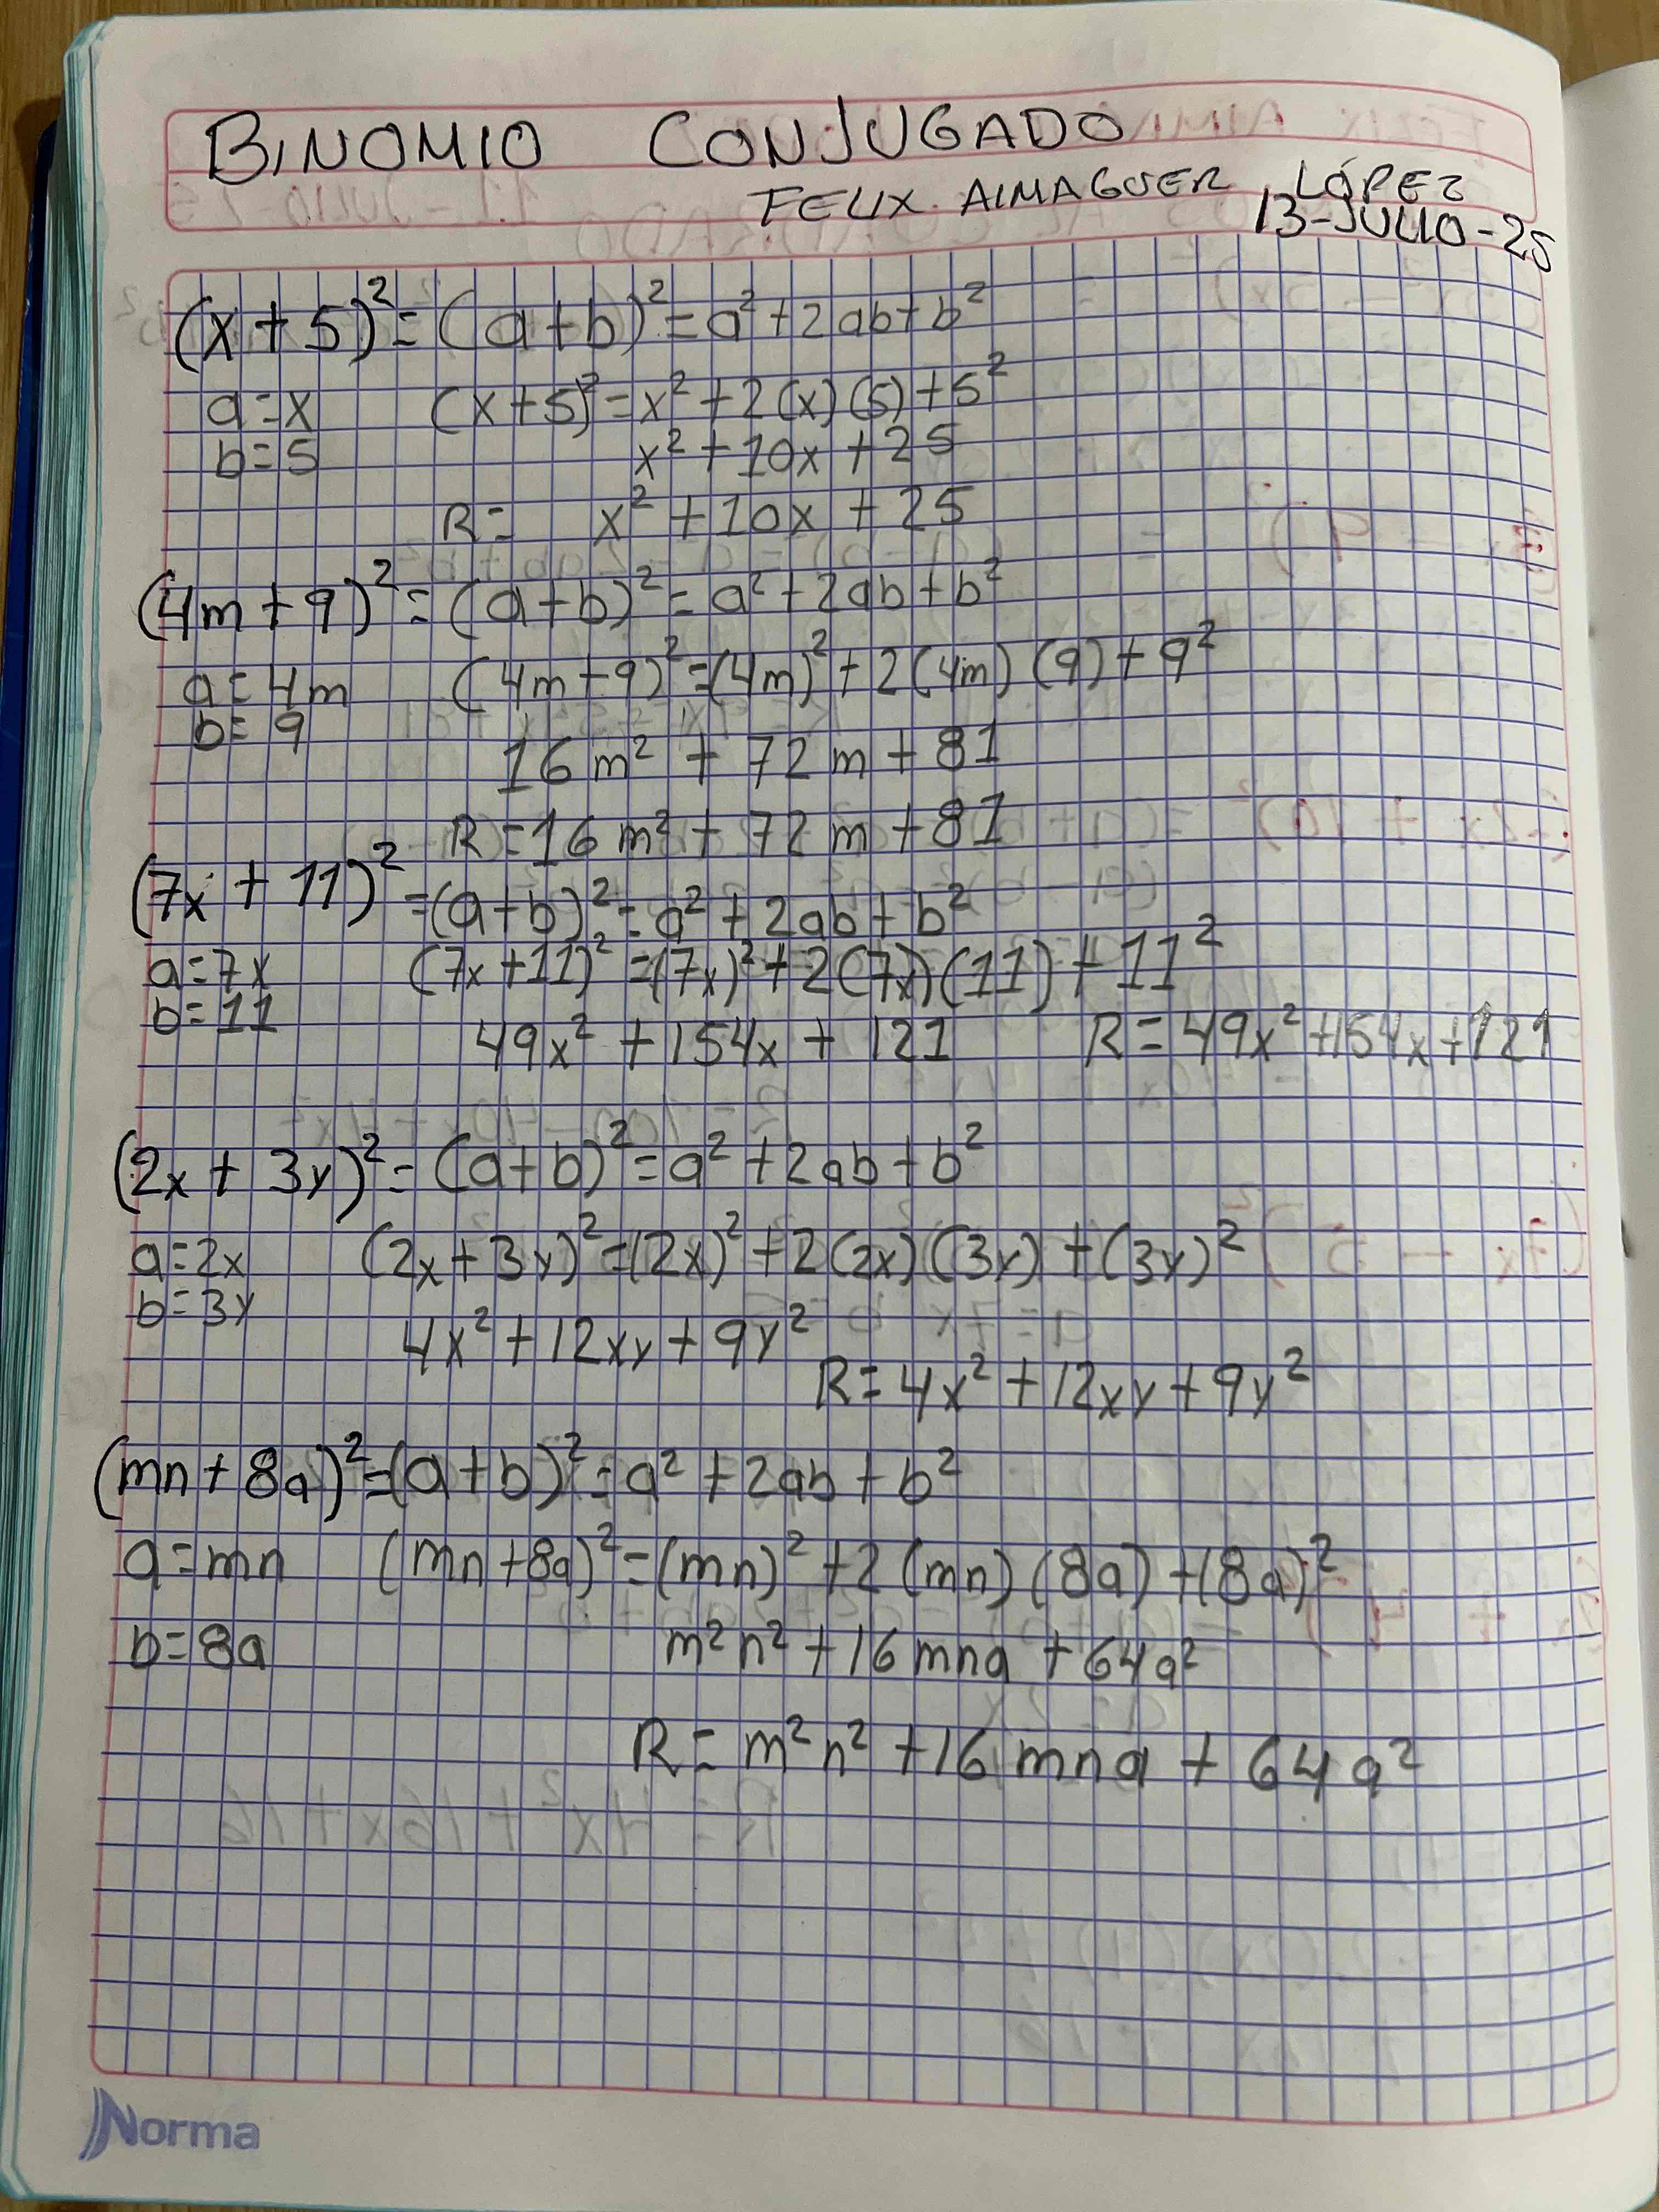 BINOMIO CONJUGADO
FELIX ALMAGUER LÓPEZ
13-JULIO-25
(x+5)²=(a+b)²=a²+2ab+b²
a=x (x+5)²=x²+2(x)(5)+5²
b=5 x²+10x+25
R= x²+10x+25
(4m+9)²=(a+b)²=a²+2ab+b²
a=4m (4m+9)²=(4m)²+2(4m)(9)+9²
b=9
16m²+72m+81
R=16m²+72m+81
(7x+11)²=(a+b)²=a²+2ab+b²
a=7x (7x+11)²=(7x)²+2(7x)(11)+11²
b=11 49x²+154x+121 R=49x²+154x+121
(2x+3y)²=(a+b)²=a²+2ab+b²
a=2x (2x+3y)²=(2x)²+2(2x)(3y)+(3y)²
b=3y 4x²+12xy+9y²
R=4x²+12xy+9y²
(mn+8a)²=(a+b)²=a²+2ab+b²
a=mn (mn+8a)²=(mn)²+2(mn)(8a)+(8a)²
b=8a m²n²+16mna+64a²
R=m²n²+16mna+64a²
Norma